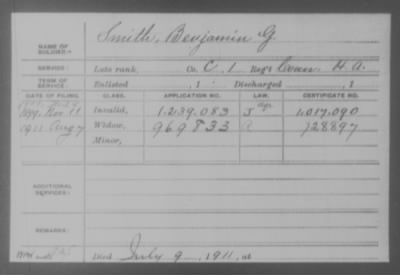 Smith, Benjamin G.
NAME OF SOLDIER:
SERVICE: Late rank, Co. C, 1 Reg't Conn. H. A.
TERM OF SERVICE: Enlisted , 1 Discharged , 1
DATE OF FILING. CLASS. APPLICATION NO. LAW. CERTIFICATE NO.
Nov 11 Invalid, 1.239.083 J 1,017,090
1911 Aug 7 Widow, 969833 728897
Minor,
ADDITIONAL SERVICES:
REMARKS:
Died July 9, 1911, at